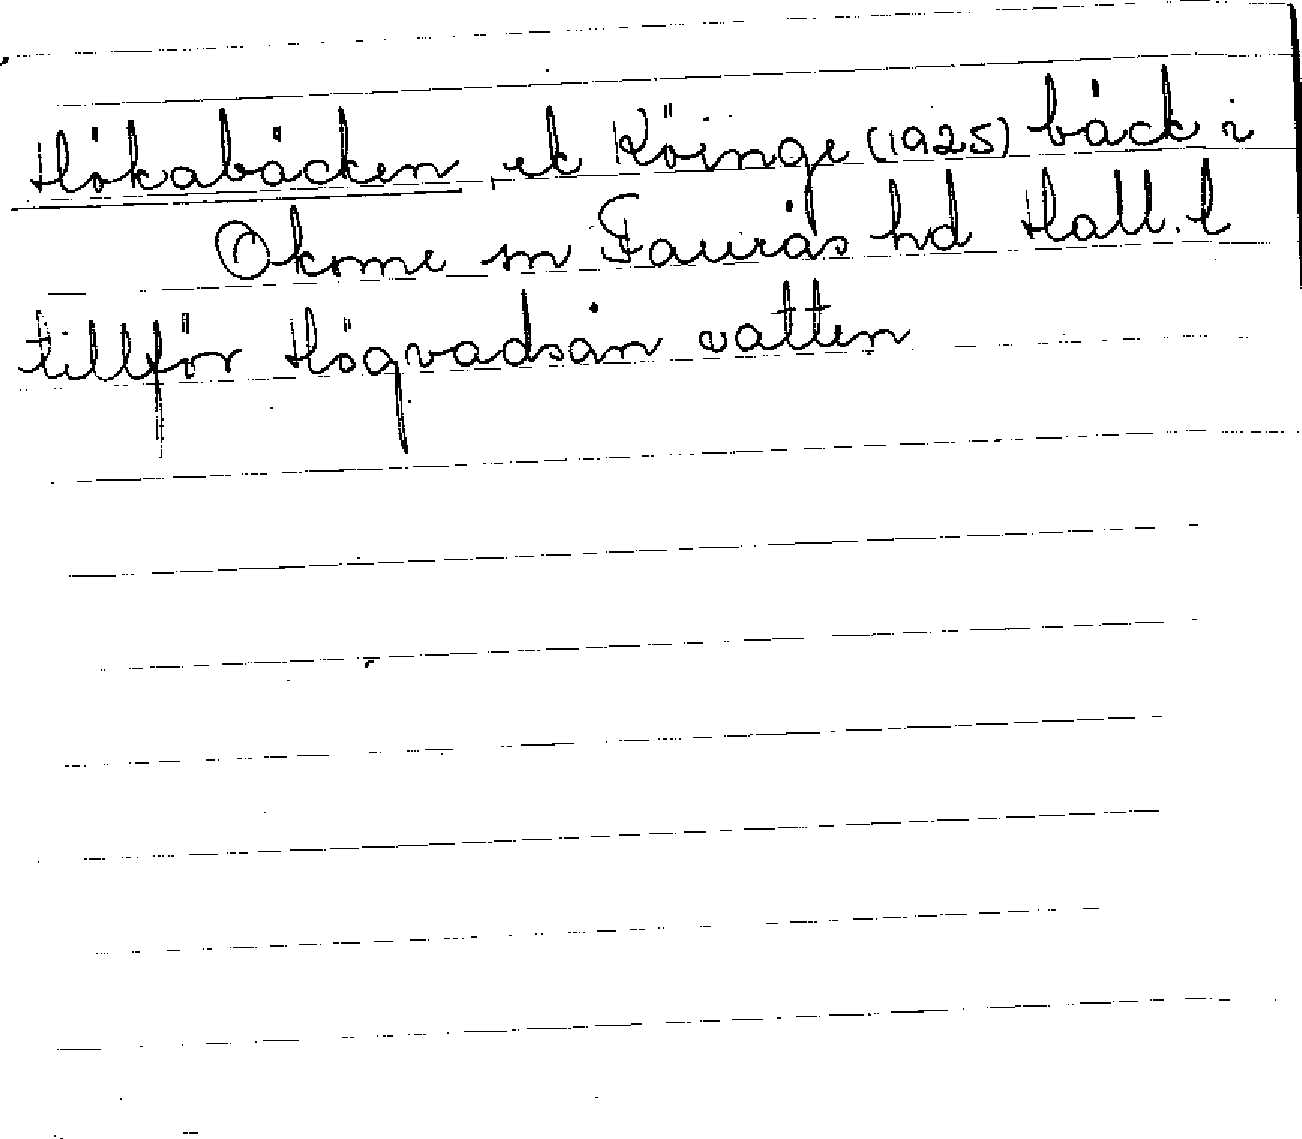 Hökabäcken, ek Köinge (1925) bäck i
Okome sn Faurås hd Hall. l
tillför Högvadsån vatten